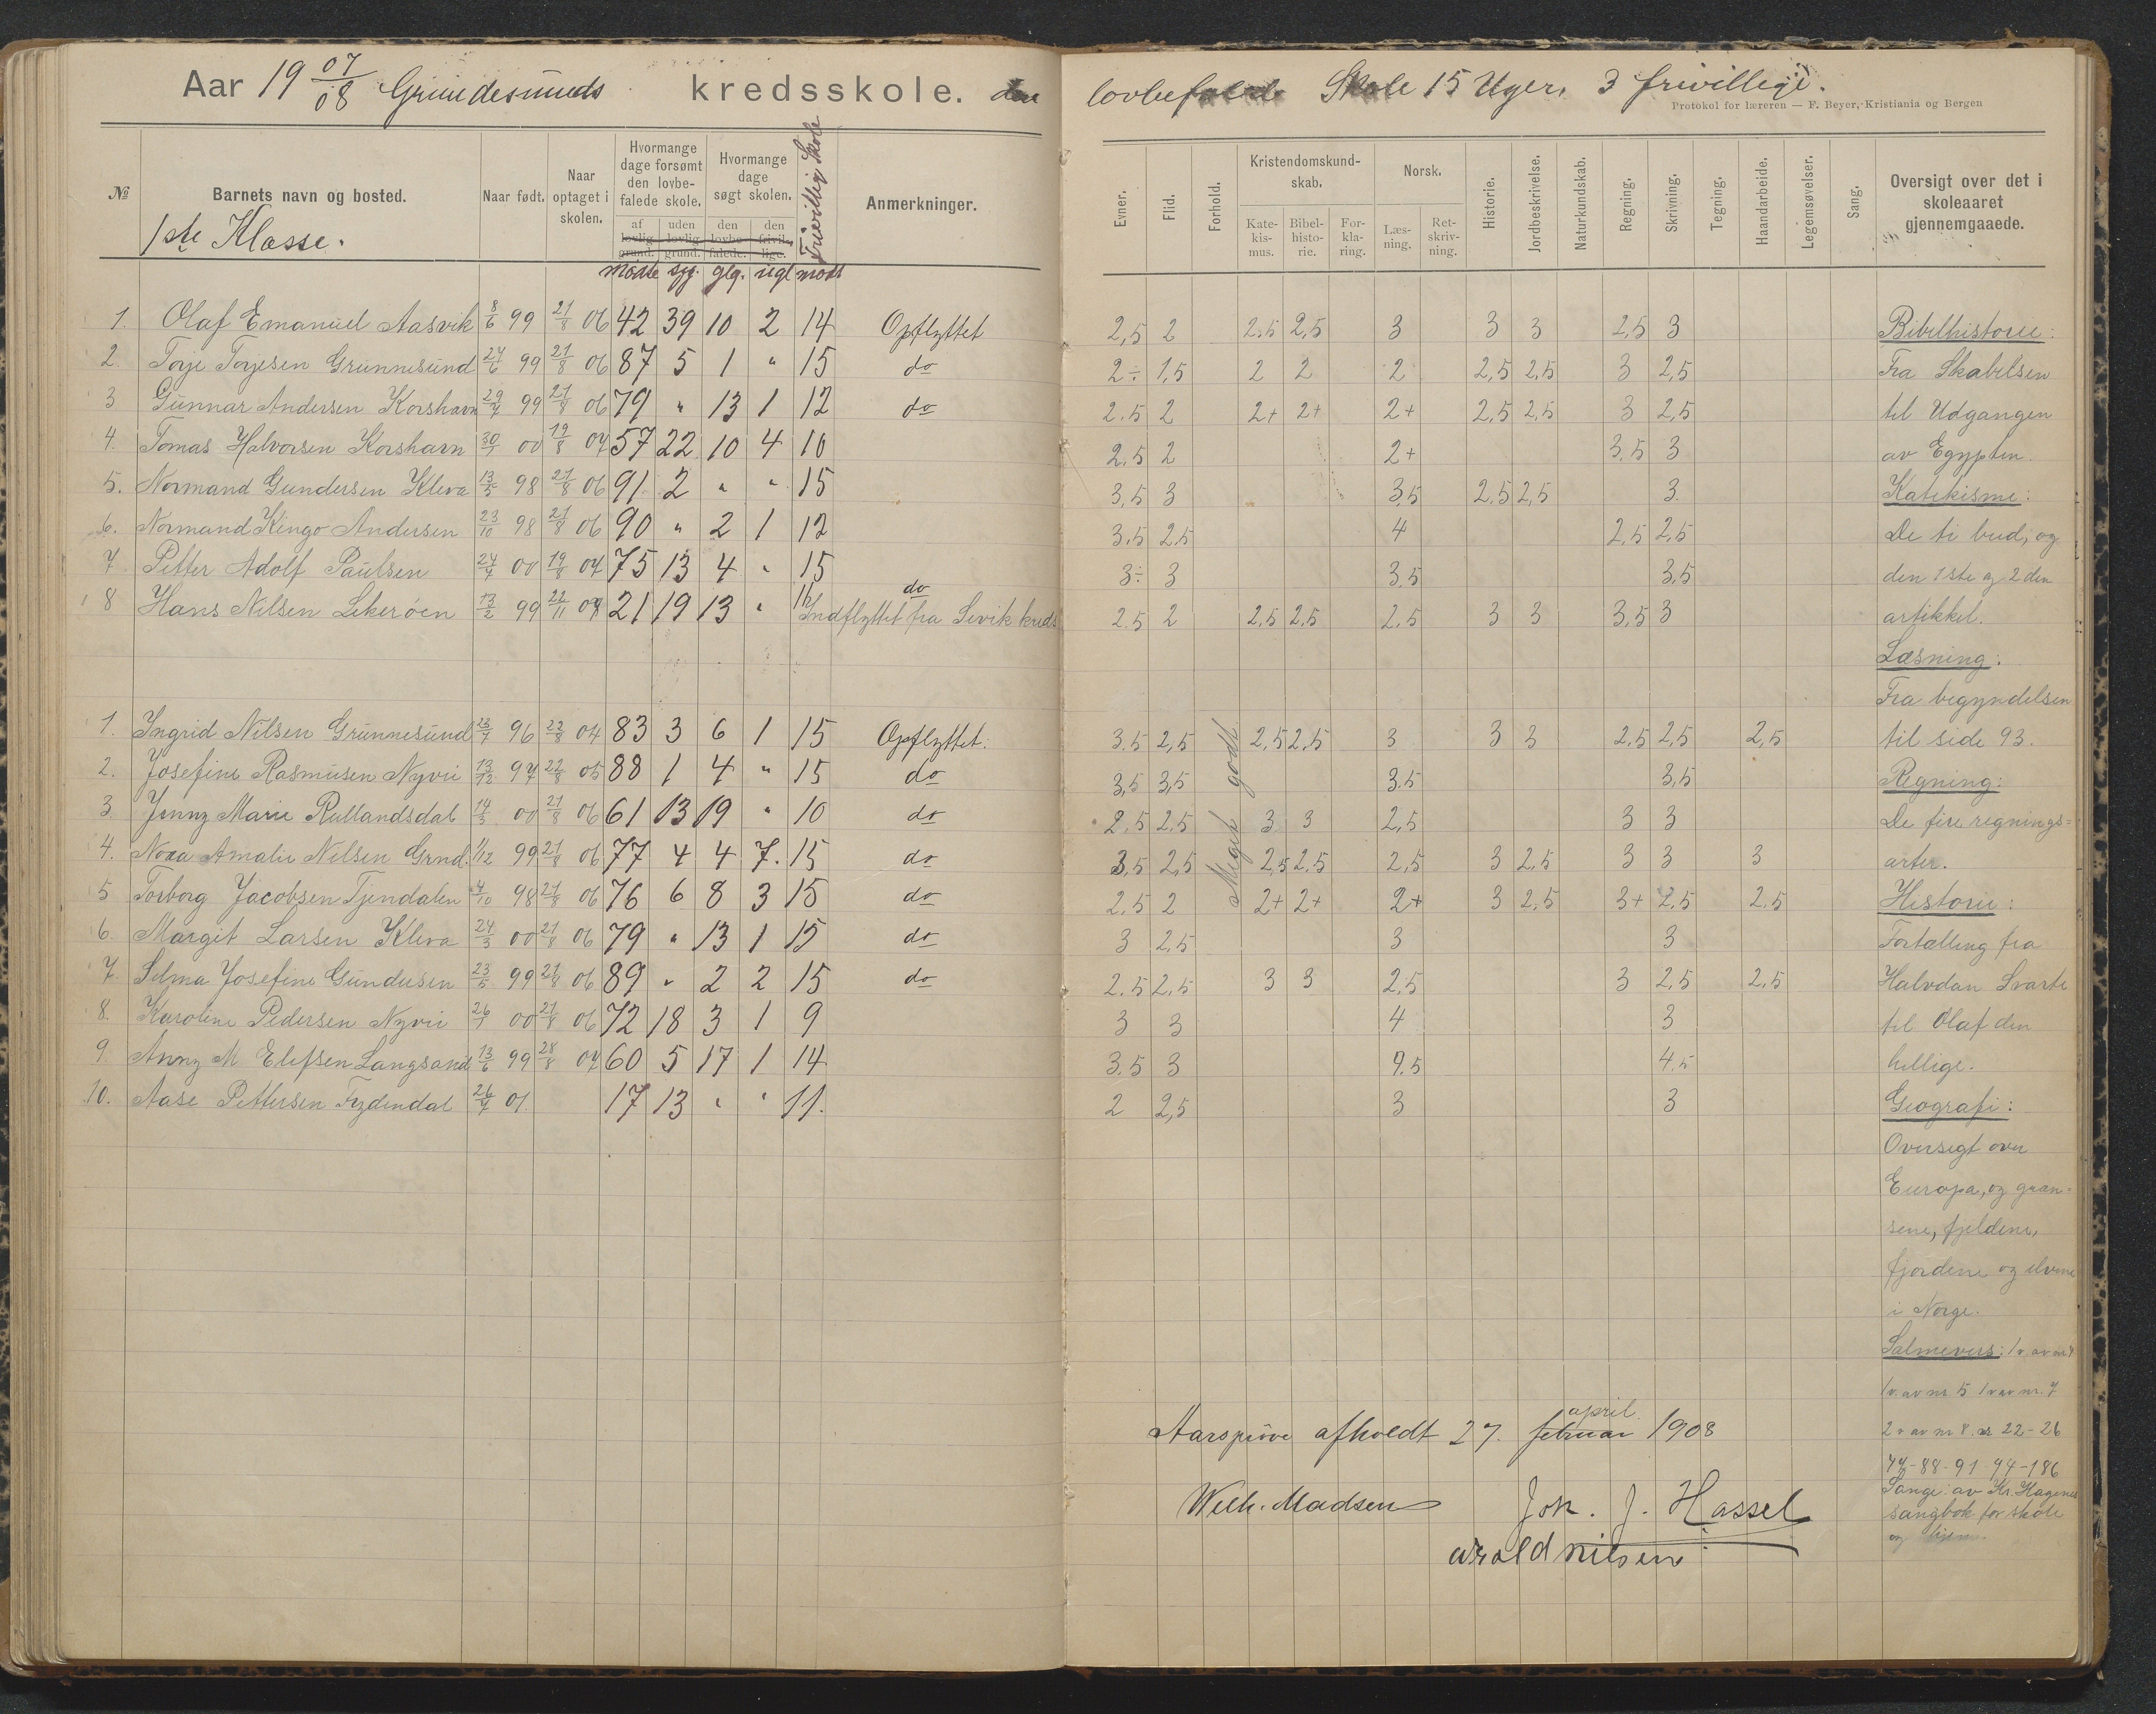 Aar 19 07/08 Grundesunds kredsskole. den lovbefalede Skole 15 Uger, 3 frivillige.
Protokol for læreren — F. Beyer, Kristiania og Bergen
№ | Barnets navn og bosted. | Naar født. | Naar optaget i skolen. | Hvormange dage forsømt den lovbefalede skole. | af lovlig grund. | uden lovlig grund. | Hvormange dage søgt skolen. | den lovbefalede. | den frivillige. | Frivillig Skole | Anmerkninger.
1ste Klasse.
mødte | syg. | glg. | ugl | mødt
1. Olaf Emanuel Aasvik 8/6 99 21/8 06 42 39 10 2 14 Opflyttet
2. Torje Torjesen Grunnesund 24/6 99 21/8 06 87 5 1 " 15 do
3 Gunnar Andersen Korshavn 29/7 99 21/8 06 79 " 13 1 12 do
4. Tomas Halvorsen Korshavn 30/7 00 19/8 07 57 22 10 4 10
5. Normand Gundersen Kleva 13/5 98 21/8 06 91 2 " " 15
6. Normand Kingo Andersen 23/10 98 21/8 06 90 " 2 1 12
7. Petter Adolf Paulsen 24/7 00 19/8 07 75 13 4 " 15
8 Hans Nilsen Lekerøen 13/2 99 22/11 07 21 19 13 " do Indflyttet fra Sevik kreds
1. Ingrid Nilsen Grunnesund 23/7 96 22/8 04 83 3 6 1 15 Opflyttet:
2. Josefine Rasmusen Nyvii 13/12 97 22/8 05 88 1 4 " 15 do
3 Jenny Marie Rullandsdal 14/3 00 21/8 06 61 13 19 " 10 do
4. Nora Amalie Nilsen Grnd. 1/12 99 21/8 06 77 4 4 7. 15 do
5 Torborg Jacobsen Tjendalen 4/10 98 21/8 06 76 6 8 3 15 do
6. Margit Larsen Kleva 24/3 00 21/8 06 79 " 13 1 15 do
7 Selma Josefine Gundersen 23/5 99 21/8 06 89 " 2 2 15 do
8. Karoline Pedersen Nyvii 26/1 00 21/8 06 72 18 3 1 9
9. Anny M Elefsen Langsand 13/6 99 28/8 07 60 5 17 1 14
10. Aase Pettersen Fydendal 26/7 01 17 13 " " 11.
Evner. | Flid. | Forhold. | Kristendomskundskab. | Katekismus. | Bibelhistorie. | Forklaring. | Norsk. | Læsning. | Retskrivning. | Historie. | Jordbeskrivelse. | Naturkundskab. | Regning. | Skrivning. | Tegning. | Haandarbeide. | Legemsøvelser. | Sang. | Oversigt over det i skoleaaret gjennemgaaede.
2,5 2 2.5 2,5 3 3 3 2,5 3
2÷ 1,5 2 2 2 2,5 2,5 3 2,5
2.5 2 2+ 2+ 2+ 2,5 2,5 3 2,5
2.5 2 2+ 3.5 3
3,5 3 3,5 2.5 2,5 3.
3.5 2,5 4 2,5 2,5
3÷ 3 3.5 3,5
2.5 2 2,5 2,5 2,5 3 3 3,5 3
Meget godt
3.5 2,5 2,5 2,5 3 3 3 2,5 2,5 2,5
3,5 3,5 3.5 3,5
2.5 2.5 3 3 2,5 3 3
3,5 2,5 2,5 2,5 2,5 3 2,5 3 3 3
2.5 2 2+ 2+ 2+ 3 2,5 3+ 2,5 2.5
3 2,5 3 3
2.5 2,5 3 3 2,5 3 2,5 2,5
3 3 4 3
3.5 3 4,5 4.5
2 2,5 3 3
Bibelhistorie:
Fra Skabelsen
til Udgangen
av Egypten.
Katekisme:
De ti bud, og
den 1ste og 2den
artikkel.
Læsning:
Fra begyndelsen
til side 93.
Regning:
De fire regnings=
arter.
Historie:
Fortælling fra
Halvdan Svarte
til Olaf den
hellige.
Geografi:
Oversigt over
Europa, og græn=
sene, fjeldene,
fjordene og elvene
i Norge.
Salmevers: 1 v. av nr
1 v. av nr. 5 1 v av nr. 7
2 v av nr 8. 22-26
-88-91 94-186
Sange: av Kr. Hagenes
sangbok for skole
og hjem.
Aarsprøve afholdt 27. februar april 1908
Wilh. Madsen Joh. J. Hassel
Arold Nilsen